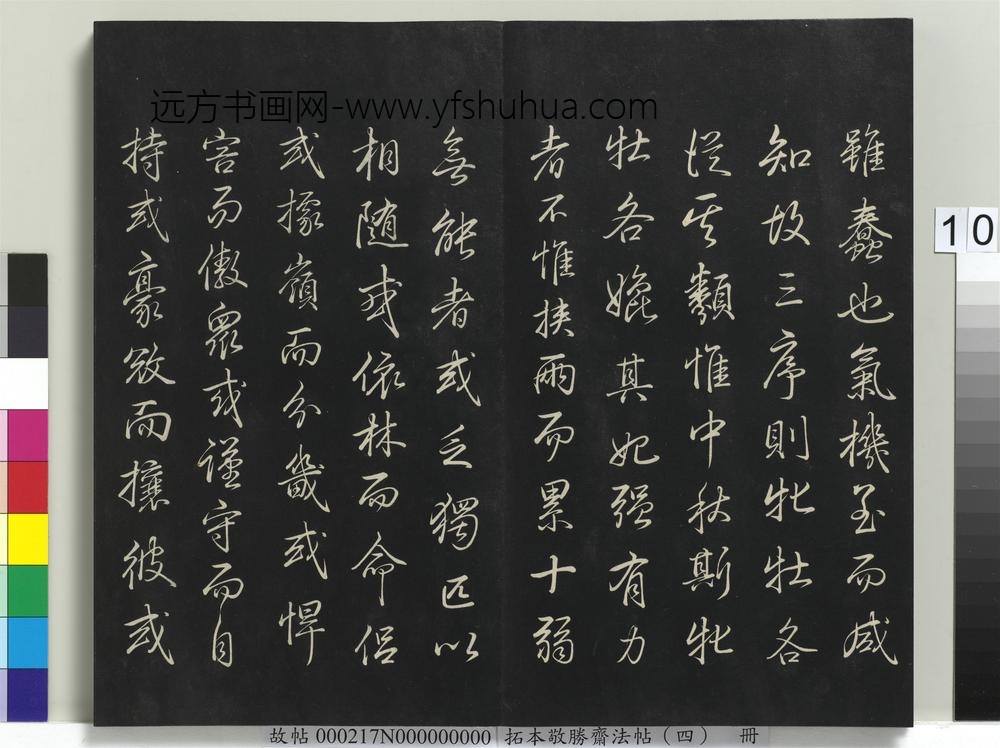 远方书画网-www.yfshuhua.com
雖蠢也氣機至而咸
知故三序則牝牡各
從其類惟中秋斯牝
牡各媲其妃强有力
者不惟挾兩而累十弱
無能者或乏獨匹以
相隨或依林而命侣
或據嶺而分畿或悍
害而傲眾或謹守而自
持或豪敓而攘彼或
10
故帖 000217N000000000 拓本敬勝齋法帖(四) 冊